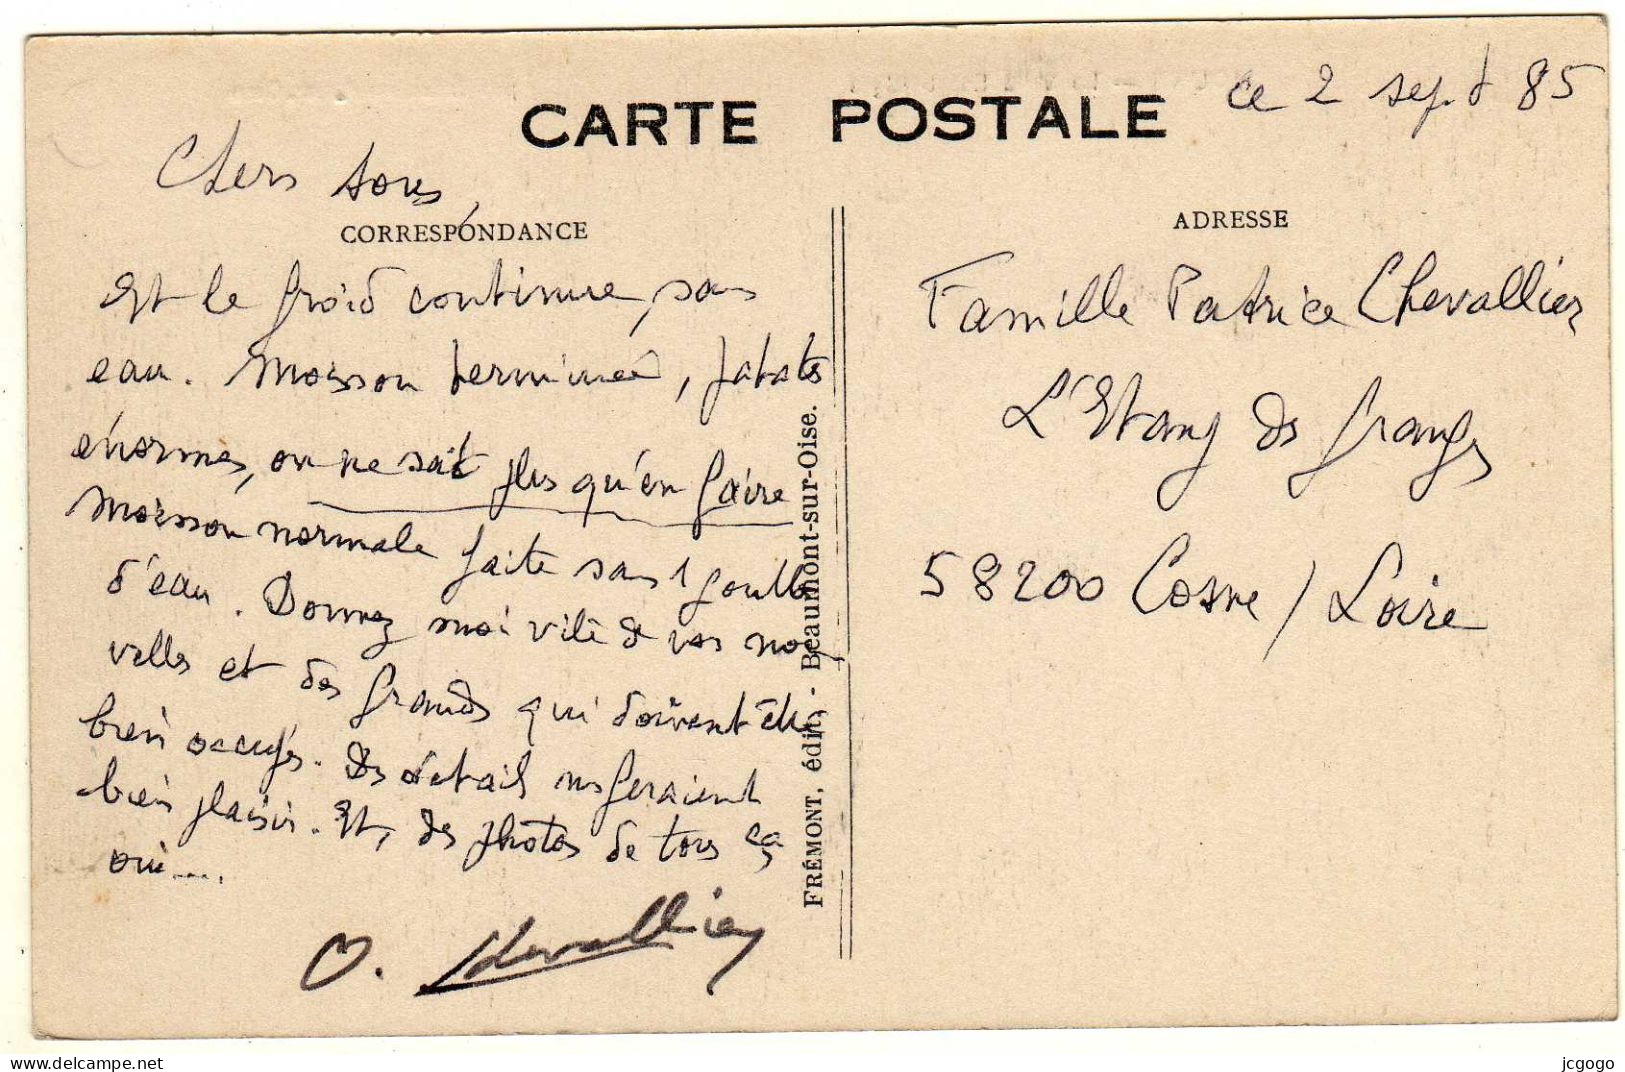 CARTE POSTALE
ce 2 sept 85
Chers tous,
CORRESPONDANCE
Et le froid continue, sans
eau. Moisson terminée, patates
énormes, on ne sait plus qu'en faire
Moisson normale faite sans 1 goutte
d'eau. Donnez moi vite de vos nou
velles et des grands qui doivent être
bien occupés. Des détails ns feraient
bien plaisir. Et, des photos de tous ça
oui....
O. Chevallier
FRÉMONT, édit. - Beaumont-sur-Oise.
ADRESSE
Famille Patrice Chevallier
L'Etang des Granges
58200 Cosne / Loire
delcampe.net
jcgogo